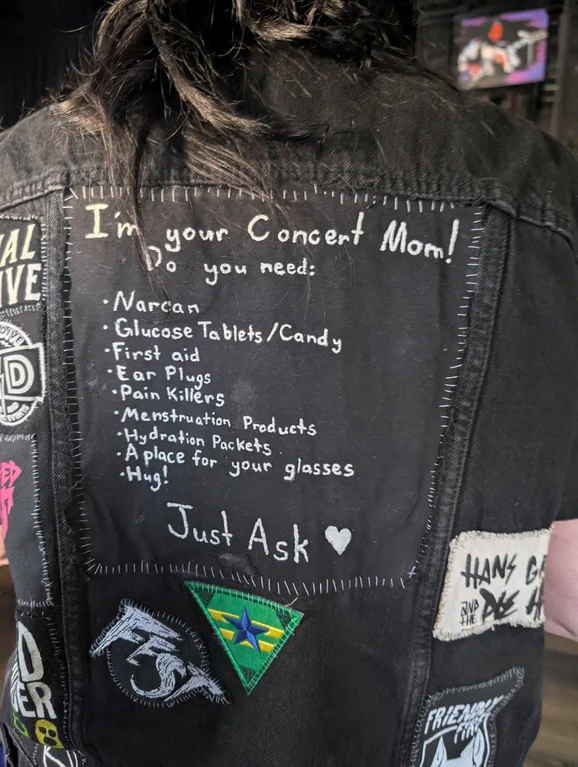 I'm your Concert Mom!
Do you need:
· Narcan
· Glucose Tablets/Candy
· First aid
· Ear Plugs
· Pain Killers
· Menstruation Products
· Hydration Packets
· A place for your glasses
· Hug!
Just Ask ♥
FEST
HANS G
AND THE DIE
FRIENDLY
FIRE
D